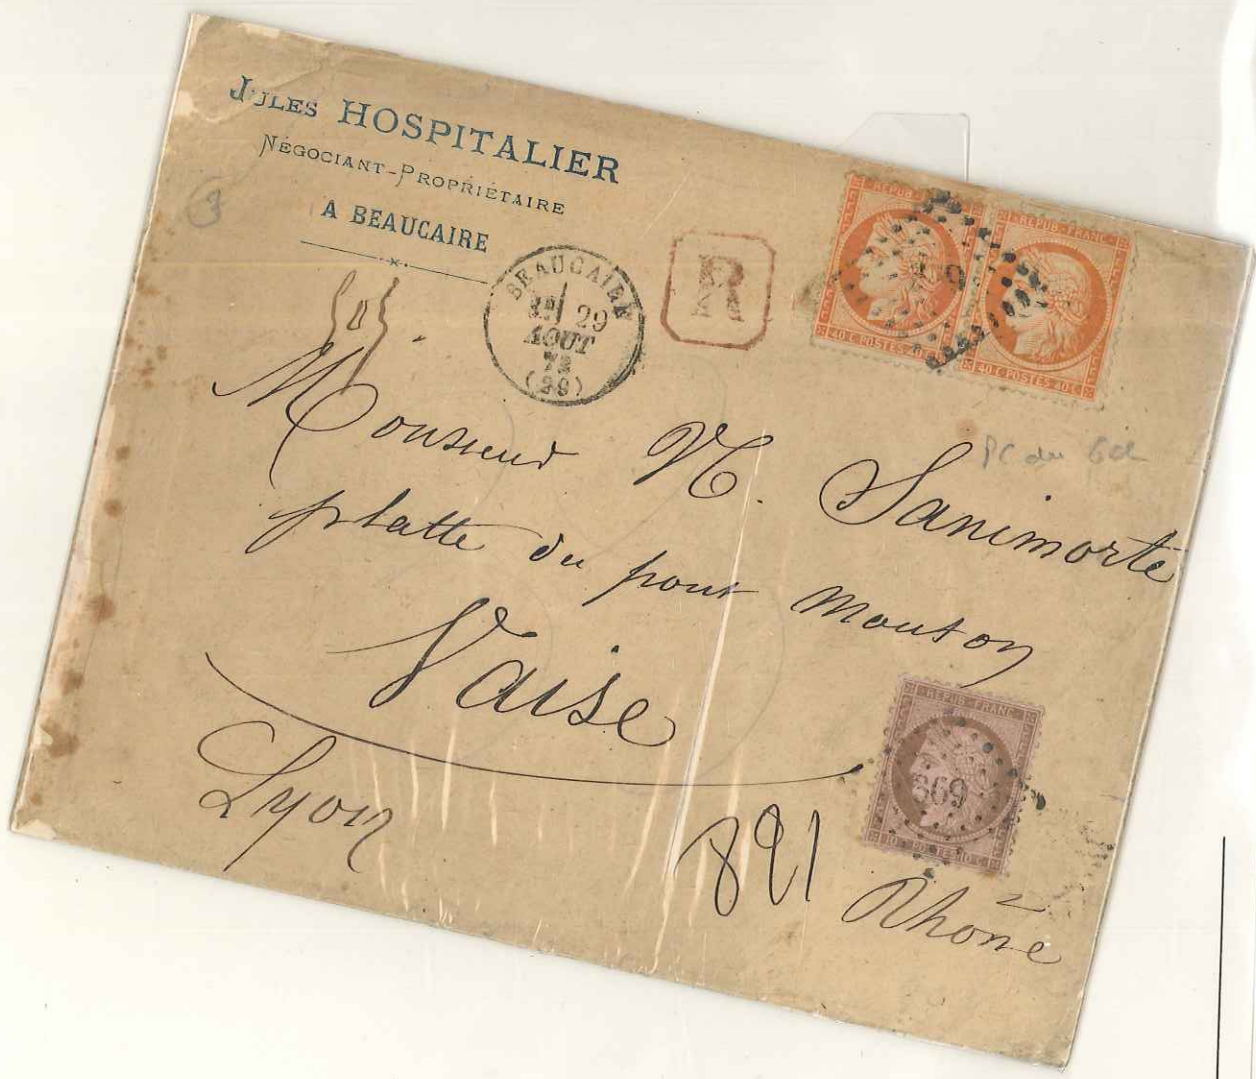 JULES HOSPITALIER
NÉGOCIANT-PROPRIÉTAIRE
A BEAUCAIRE
BEAUCAIRE
29
AOUT
72
(29)
R
REPUB·FRANC
40 C POSTES 40 C
REPUB·FRANC
40 C POSTES 40 C
PC du
Monsieur N. Sanimorte
platte du pont Mouton
Vaise
Lyon
891
Rhône
REPUB·FRANC
669
10 C POSTES 10 C